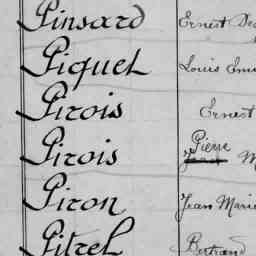 Pinsard Ernest De
Piquet Louis Em
Pirois Ernest
Pirois Pierre M
Piron Jean Marie
Pitrel Bertrand